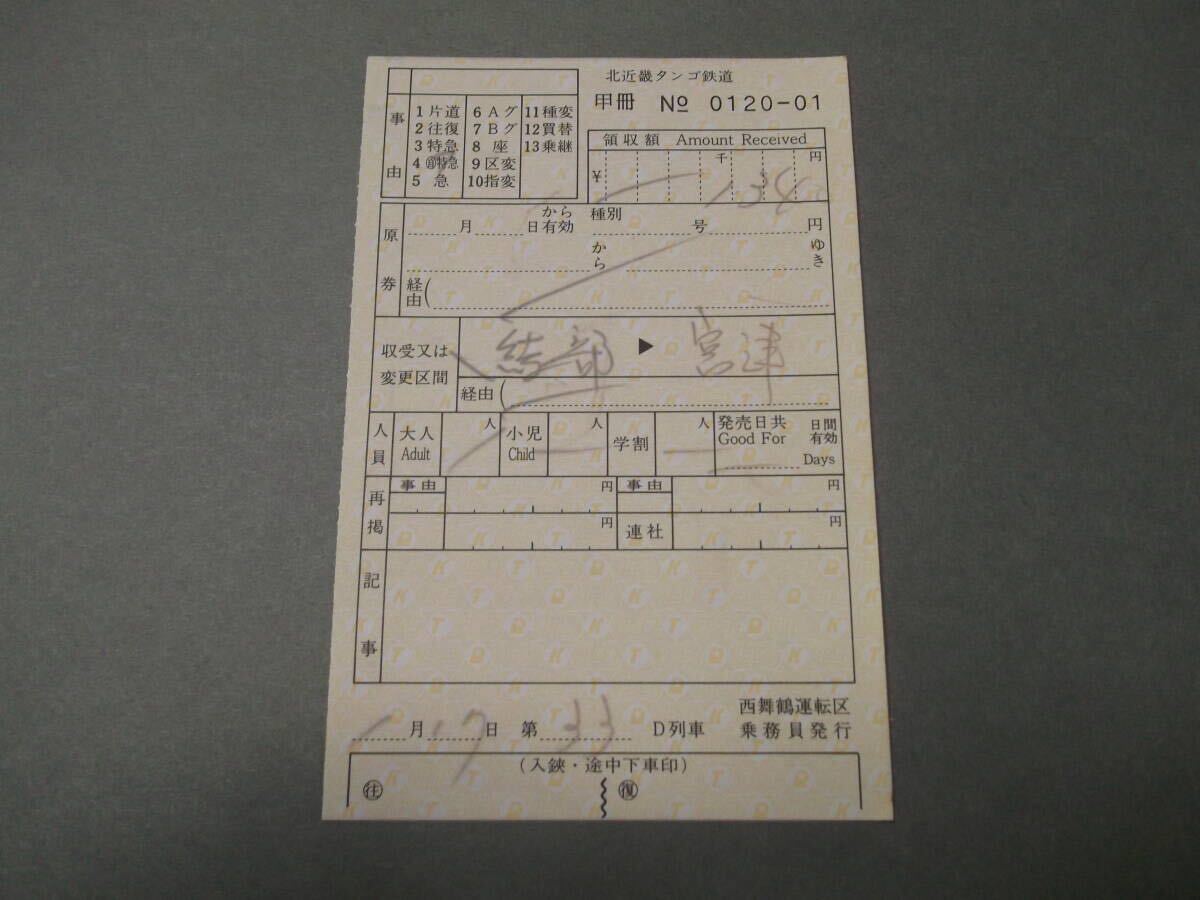 北近畿タンゴ鉄道
甲冊 № 0120-01
事由
1片道 6Aグ 11種変
2往復 7Bグ 12買替
3特急 8座 13乗継
4 特急 9区変
5急 10指変
領収額 Amount Received
千 円
¥
原券
月 日から有効 種別 号 円
から ゆき
経由(
収受又は変更区間
綾部 ▶ 宮津
経由(
人員 大人 Adult 人 小児 Child 人 学割 人 発売日共 Good For Days 日間有効
再掲 事由 円 事由 円
円 連社 円
記事
西舞鶴運転区
1月17日 第33D列車 乗務員発行
(入鋏・途中下車印)
㊟ 復